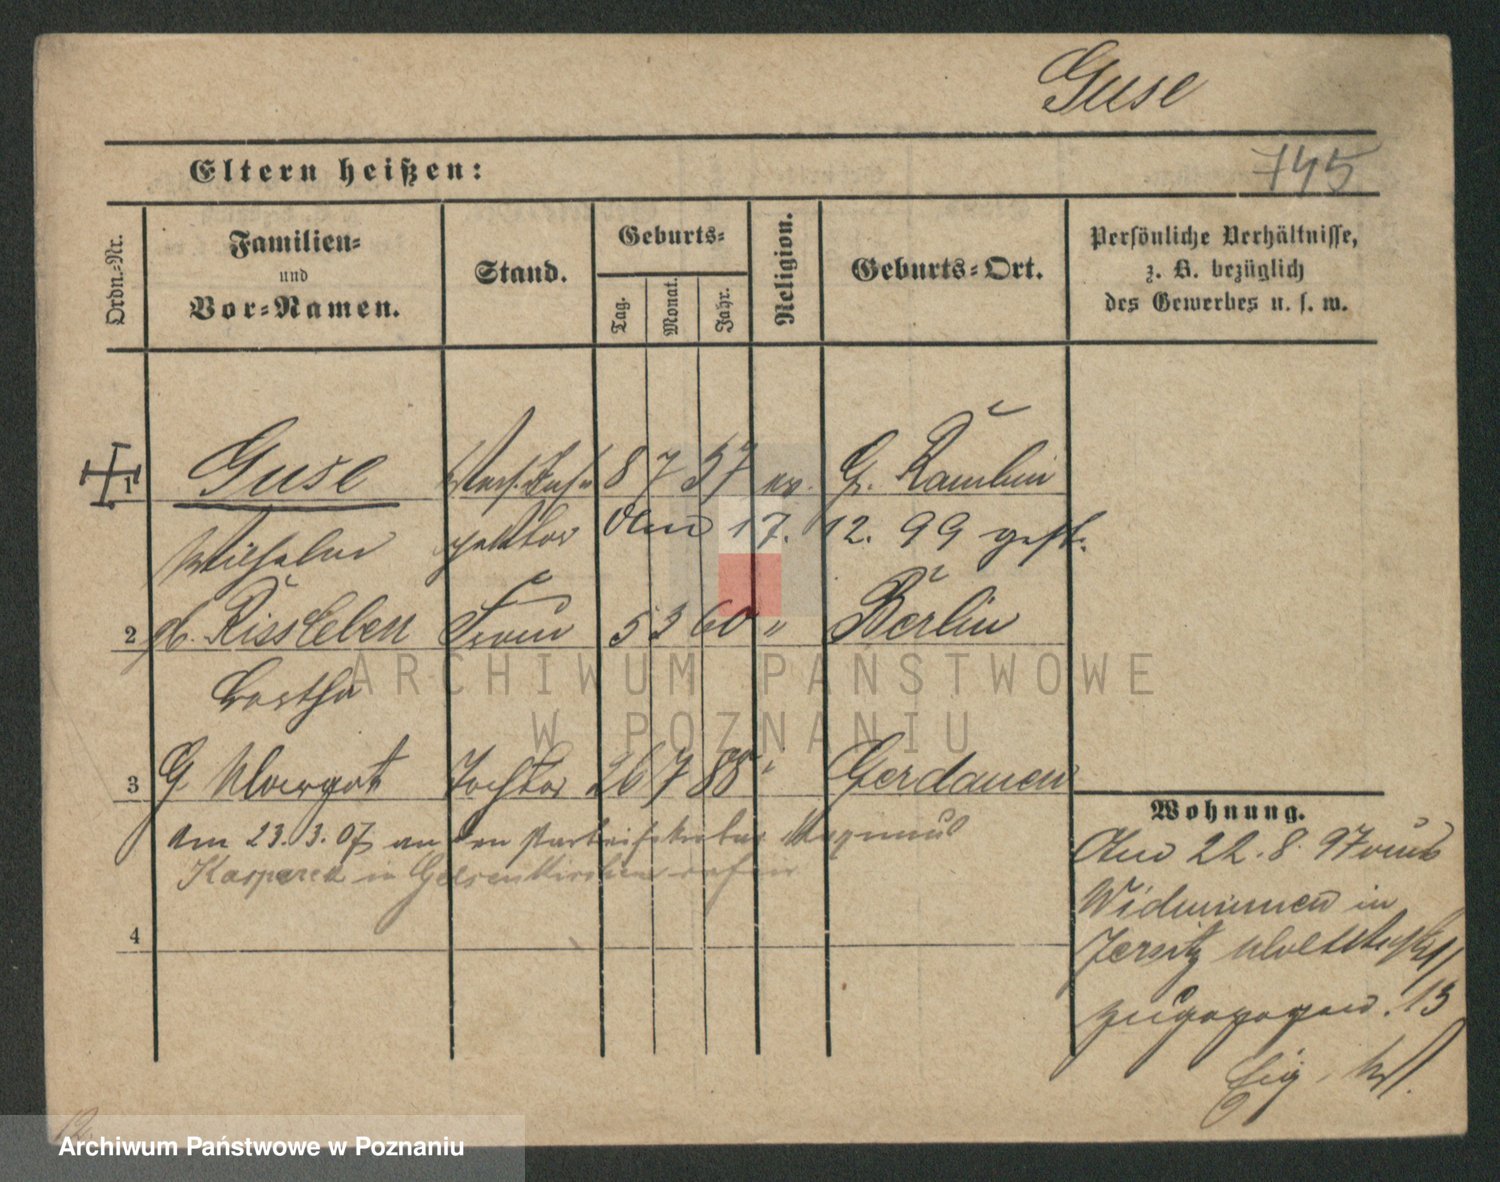 Guse
745
Eltern heißen:
Ordn.-Nr.
Familien-
und
Vor-Namen.
Stand.
Geburts-
Tag.
Monat.
Jahr.
Religion.
Geburts-Ort.
Persönliche Verhältnisse,
z. B. bezüglich
des Gewerbes u. s. w.
1 Guse 8 7 57 ev. Gr.
Wilhelm Am 17. 12. 99 gest.
2 gb. Rissleben Frau 5 3 60 " Berlin
Bertha
3 G Margot Tochter 26 7 88 " Gerdauen
Am 23. 3. 07 an den
in Gelsenkirchen
4
Wohnung.
Am 22. 8. 97 aus
Widminnen in
Jersitz
zugezogen. 13
ARCHIWUM PAŃSTWOWE
W POZNANIU
Archiwum Państwowe w Poznaniu